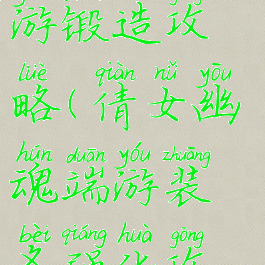 游锻造攻
lüè qiàn nǚ yōu
略(倩女幽
hún duān yóu zhuāng
魂端游装
bèi qiáng huà gōng
备强化攻